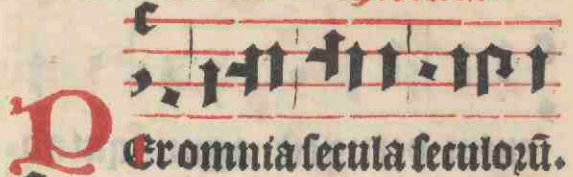 PEr omnia ſecula ſeculoꝛū.